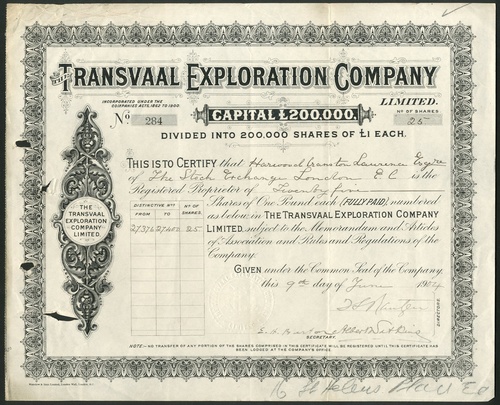 THE TRANSVAAL EXPLORATION COMPANY
LIMITED.
INCORPORATED UNDER THE
COMPANIES ACTS, 1862 TO 1900.
CAPITAL £200,000.
No 284
No OF SHARES
25
DIVIDED INTO 200,000 SHARES OF £1 EACH.
THIS IS TO CERTIFY that Harwood Cranston Laurence Esquire
of The Stock Exchange London E.C. is the
Registered Proprietor of Twenty five
Shares of One Pound each (FULLY PAID) numbered
as below, in THE TRANSVAAL EXPLORATION COMPANY
LIMITED, subject to the Memorandum and Articles
of Association and Rules and Regulations of the
Company.
GIVEN under the Common Seal of the Company,
this 9th day of June 1904
DISTINCTIVE Nos
FROM TO
No OF SHARES.
25
THE
TRANSVAAL
EXPLORATION
COMPANY
LIMITED.
DIRECTORS.
SECRETARY.
NOTE:- NO TRANSFER OF ANY PORTION OF THE SHARES COMPRISED IN THIS CERTIFICATE WILL BE REGISTERED UNTIL THIS CERTIFICATE HAS
BEEN LODGED AT THE COMPANY'S OFFICE.
16 St Helens Place EC